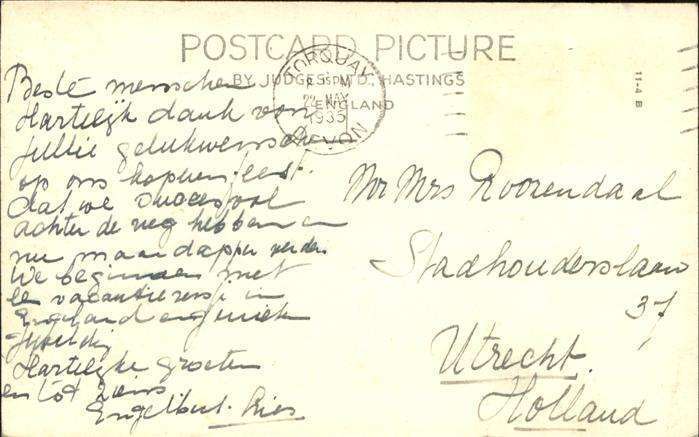 POSTCARD PICTURE
BY JUDGES LTD, HASTINGS
ENGLAND
11-4 B
TORQUAY
22 MAY
1935
DEVON
Beste menschen
Hartelijk dank voor
Jullie gelukwensch
op ons koperen feest.
dat we succesvol
achter de rug hebben en
nu maar dapper verder.
We beginnen met
een vacantiereisje in
Engeland en genieten
Hartelijke groeten
en tot ziens
Engelbert. Ries
Mr Mrs Roozendaal
Stadhouderslaan
37
Utrecht.
Holland